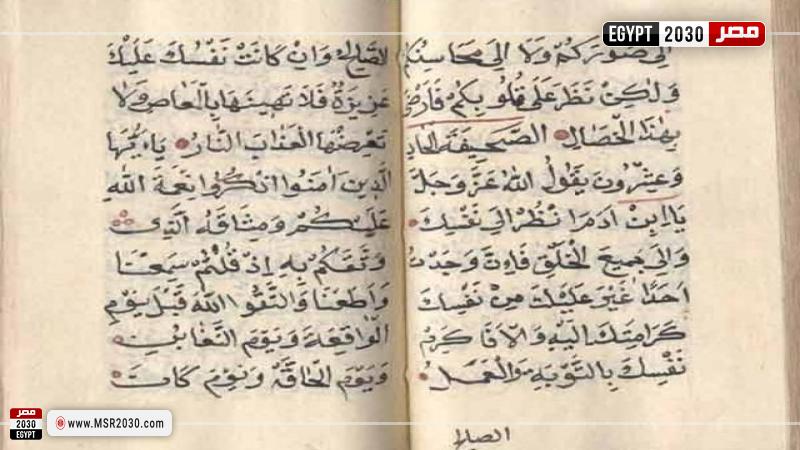 مصر 2030 EGYPT
الى صوركم ولا الى محاسنكم
ولكن نظر على قلوبكم فارضى
بهذا الخصال الصحيفة الحاد
وعشرون يقول الله عز وجل
يا ابن ادم انظر الى نفسك
والى جميع الخلق فان وجدت
احدا غير عليك من نفسك
كرامتك اليه والا فاكرم
نفسك بالتوبة والعمل
الصالح
الصالح وان كانت نفسك عليك
عزيزة فلا تهينها بالمعاص ولا
تعرضها العذاب النار يا ايها
الذين امنوا اذكروا نعمة الله
عليكم ومثاقه الذى
وثقكم به اذ قلتم سمعنا
واطعنا واتقوا الله قبل يوم
الواقعة ويوم التغابن
ويوم الحاقة ويوم كان
مصر
2030
EGYPT
www.MSR2030.com